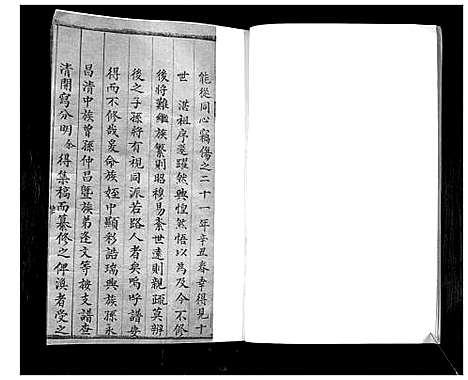 能從同心竊傷之二十一年辛丑春幸得見十
世 湛祖序遂躍然興惶然悟以為及今不修
後將難繼族繁則昭穆易紊世遠則親疏莫辨
後之子孫將有視同派若路人者矣嗚呼譜安
得而不修哉爰命族姪中顯彩誥瑞與族孫永
昌清中族曾孫仲昌曁族弟逢文等按支譜查
清開寫分明令得集稿而纂修之俾溟者受之